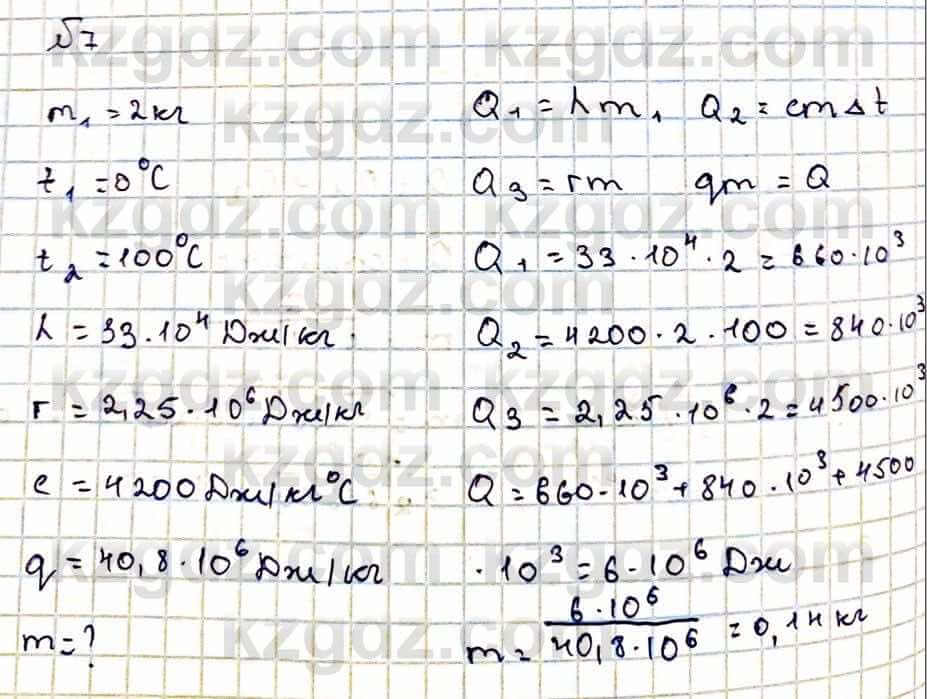 №7
m₁ = 2 кг
t₁ = 0°C
t₂ = 100°C
λ = 33 · 10⁴ Дж/кг
r = 2,25 · 10⁶ Дж/кг
c = 4200 Дж/кг°C
q = 40,8 · 10⁶ Дж/кг
m = ?
Q₁ = λm₁ Q₂ = cmΔt
Q₃ = rm qm = Q
Q₁ = 33 · 10⁴ · 2 = 660 · 10³
Q₂ = 4200 · 2 · 100 = 840 · 10³
Q₃ = 2,25 · 10⁶ · 2 = 4500 · 10³
Q = 660 · 10³ + 840 · 10³ + 4500
· 10³ = 6 · 10⁶ Дж
m = 6 · 10⁶ / 40,8 · 10⁶ = 0,14 кг
kzgdz.com